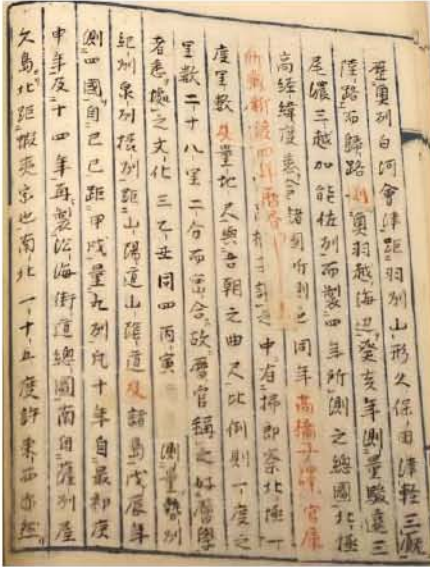 歷奧州白河會津距羽州山形久保田津輕三廐
陸路而歸路則奧羽越海辺癸亥年測量駿遠三
尾濃三越加能佐州而製四年所測之總圖北極
高經緯度悉合諸國所測也同年高橋子濱官庫
所藏新渡四年曆 中有掃即察北極一
度里數及量地尺與吾朝之曲尺比例則一度之
里數二十八里二分而密合故曆官稱之好曆學
者悉據之文化三乙丑同四丙寅 測量勢州
紀州泉州攝州距山陽道山陰道及諸島戊辰年
測四國自己巳距甲戌量九州凡十年自最初庚
申年及十四年再製沿海街道總圖南自薩州屋
久島北距蝦夷宗也南北一十五度許東西亦然